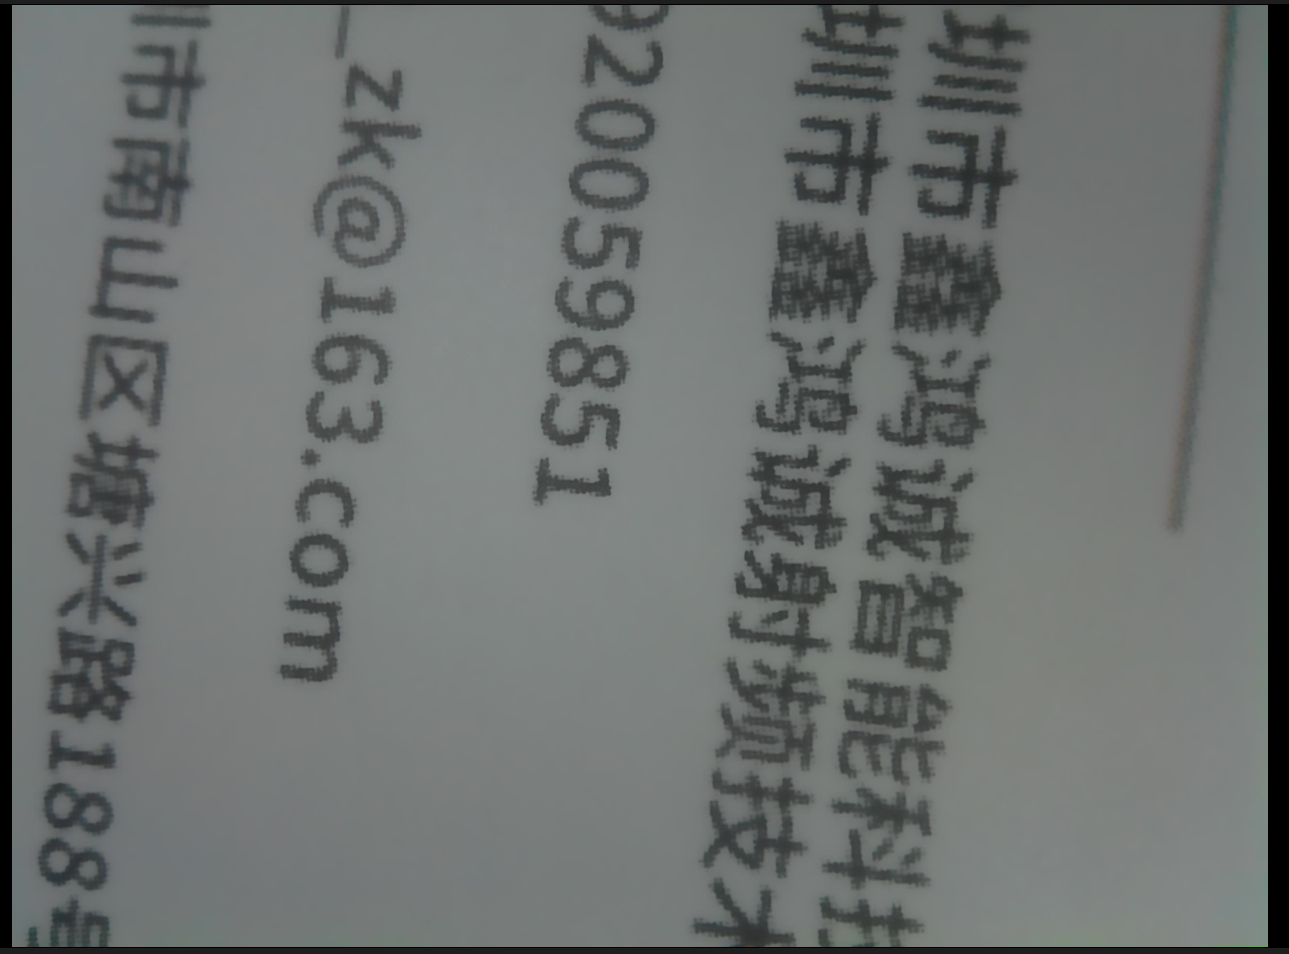 圳市鑫鸿诚智能科技
圳市鑫鸿诚射频技术
920059851
_zk@163.com
圳市南山区塘兴路188号